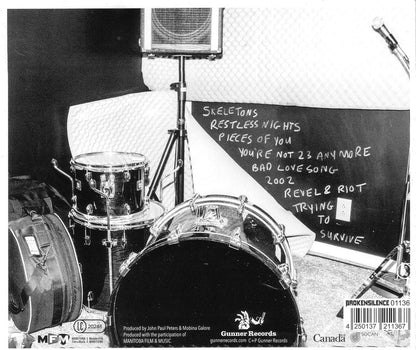 SKELETONS
RESTLESS NIGHTS
PIECES OF YOU
YOU'RE NOT 23 ANYMORE
BAD LOVE SONG
2002
REVEL & RIOT
TRYING
TO
SURVIVE
BROKENSILENCE 01136
4 250137 211367
LC
MFM
Produced by John Paul Peters & Mobina Galore
Produced with the participation of
MANITOBA FILM & MUSIC
Gunner Records
gunnerrecords.com C+P Gunner Records
Canada